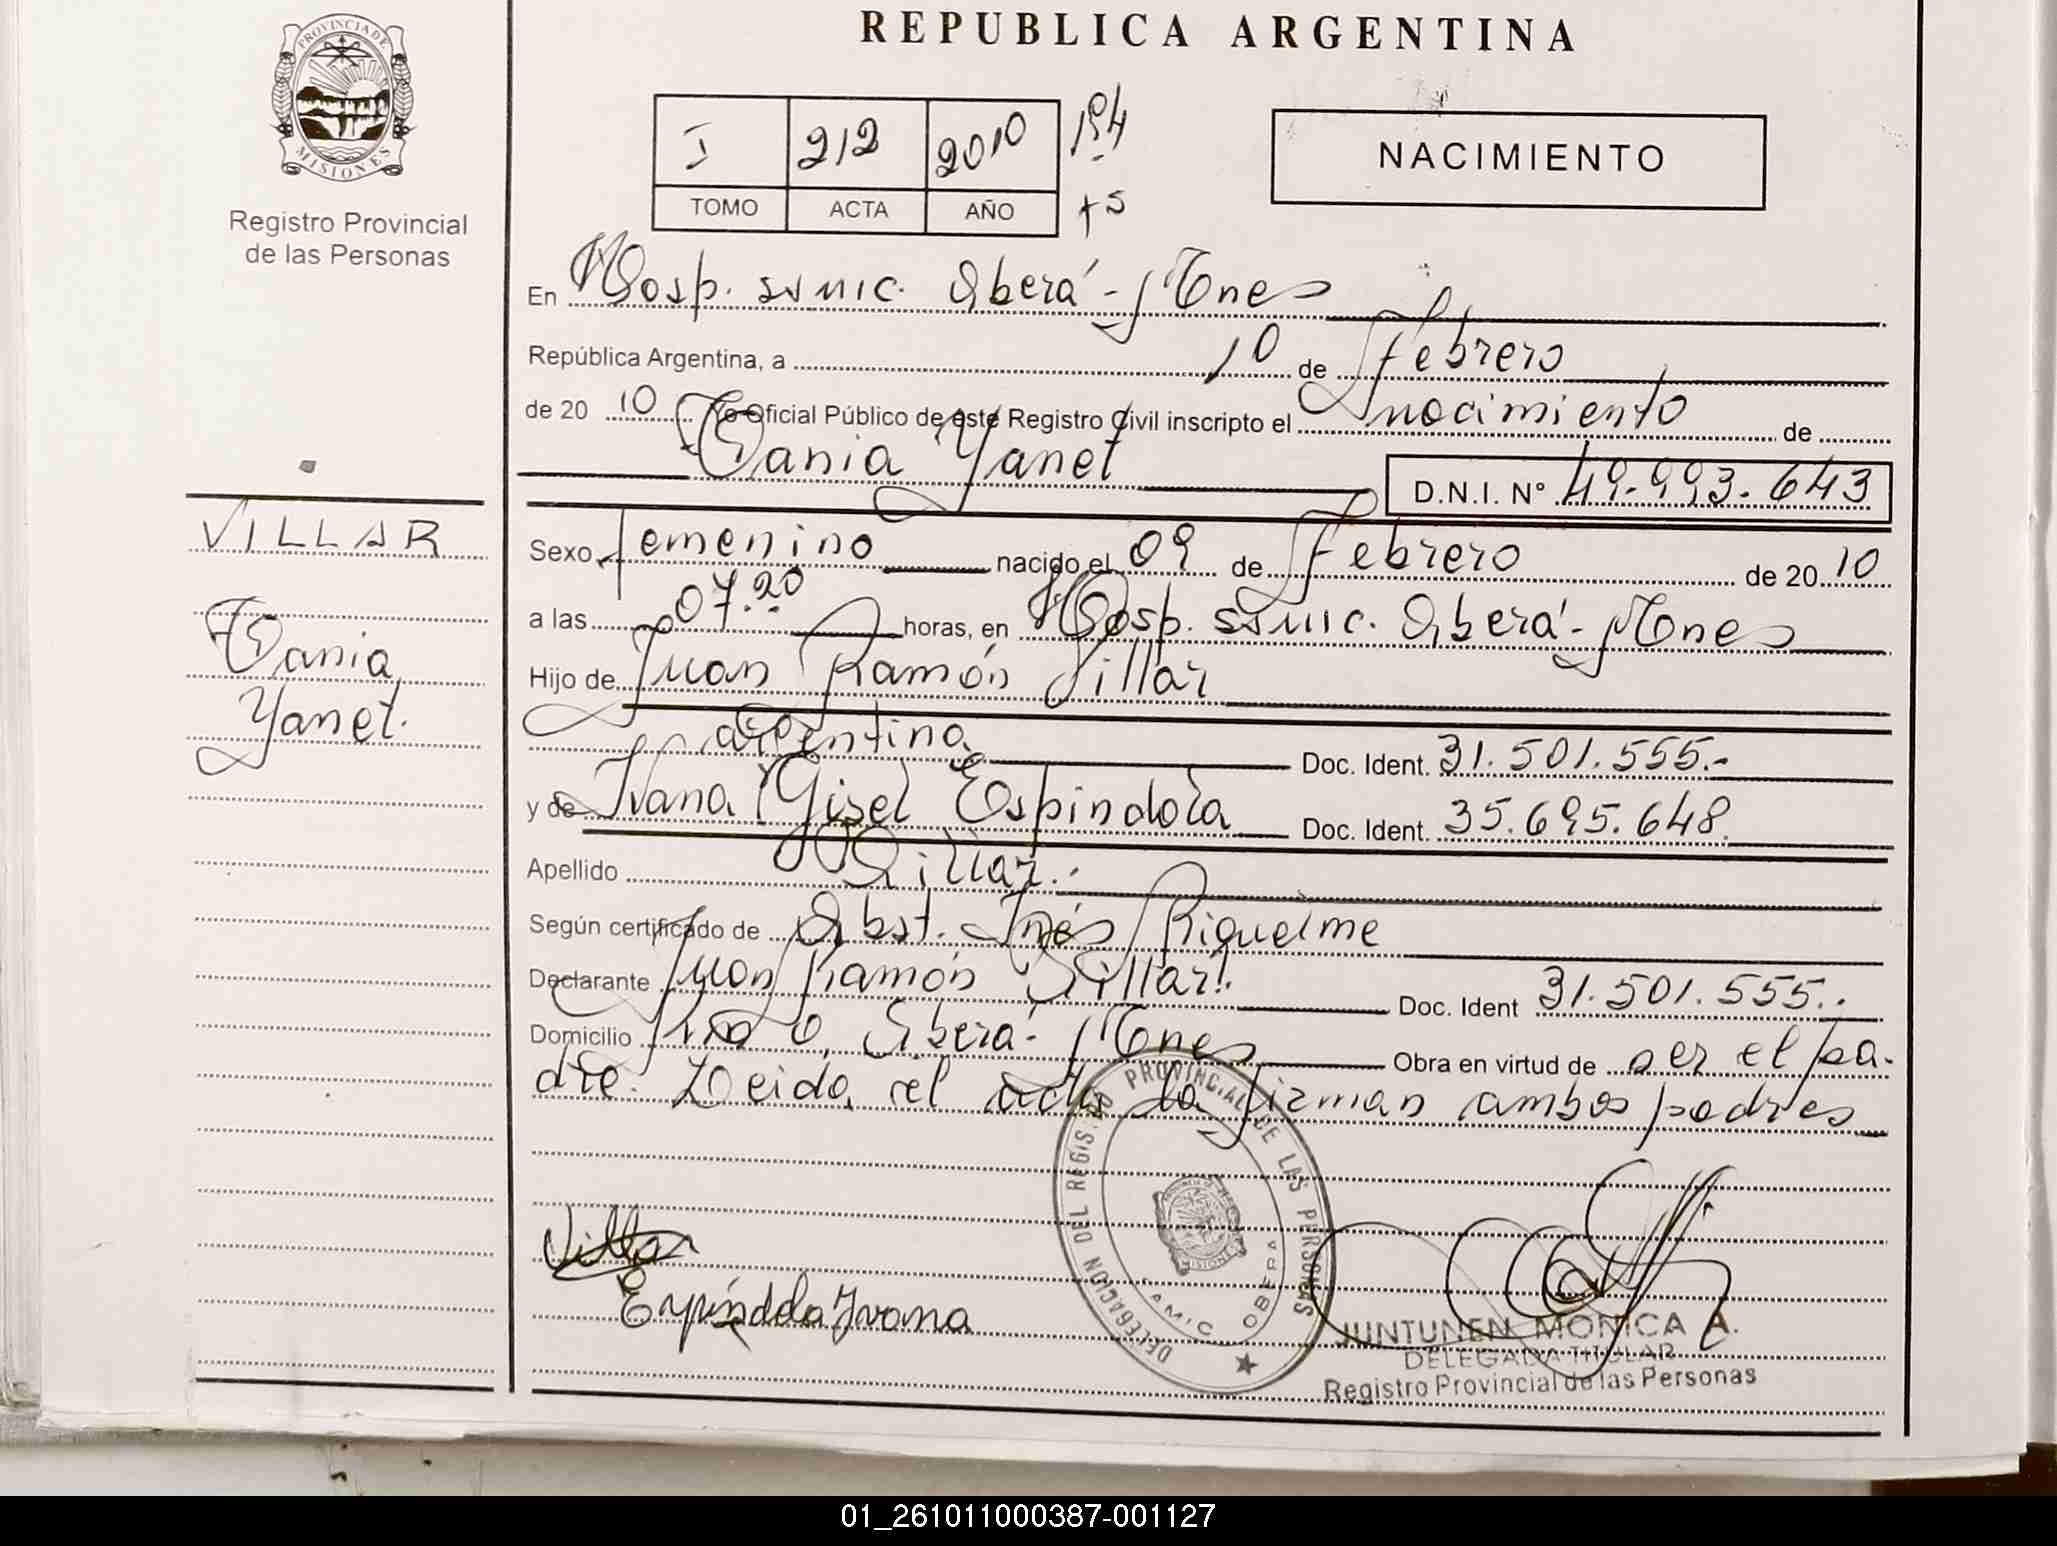 REPUBLICA ARGENTINA
PROVINCIA DE
MISIONES
Registro Provincial
de las Personas
I 212 2010 194
TOMO ACTA AÑO + 5
NACIMIENTO
En Hosp. samic. Oberá - Mnes
República Argentina, a 10 de Febrero
de 20 10 Yo Oficial Público de este Registro Civil inscripto el nacimiento de
Tania Yanet D.N.I. N° 49.993.643
VILLAR
Tania
Yanet.
Sexo femenino nacido el 09 de Febrero de 20 10
a las 07.20 horas, en Hosp. samic. Oberá - Mnes
Hijo de Juan Ramón Villar
argentino Doc. Ident. 31.501.555.-
y de Ivana Gisel Espindola Doc. Ident. 35.695.648.
Apellido Villar.-
Según certificado de Obst. Inés Riquelme
Declarante Juan Ramón Villar. Doc. Ident 31.501.555.-
Domicilio Oberá - Mnes Obra en virtud de ser el pa-
dre. Leida el acta la firman ambos padres
Villar
Espíndola Ivana
DELEGACION DEL REGISTRO PROVINCIAL DE LAS PERSONAS
SAMIC OBERA
MISIONES
JUNTUNEN MONICA A.
DELEGADA TITULAR
Registro Provincial de las Personas
01_261011000387-001127